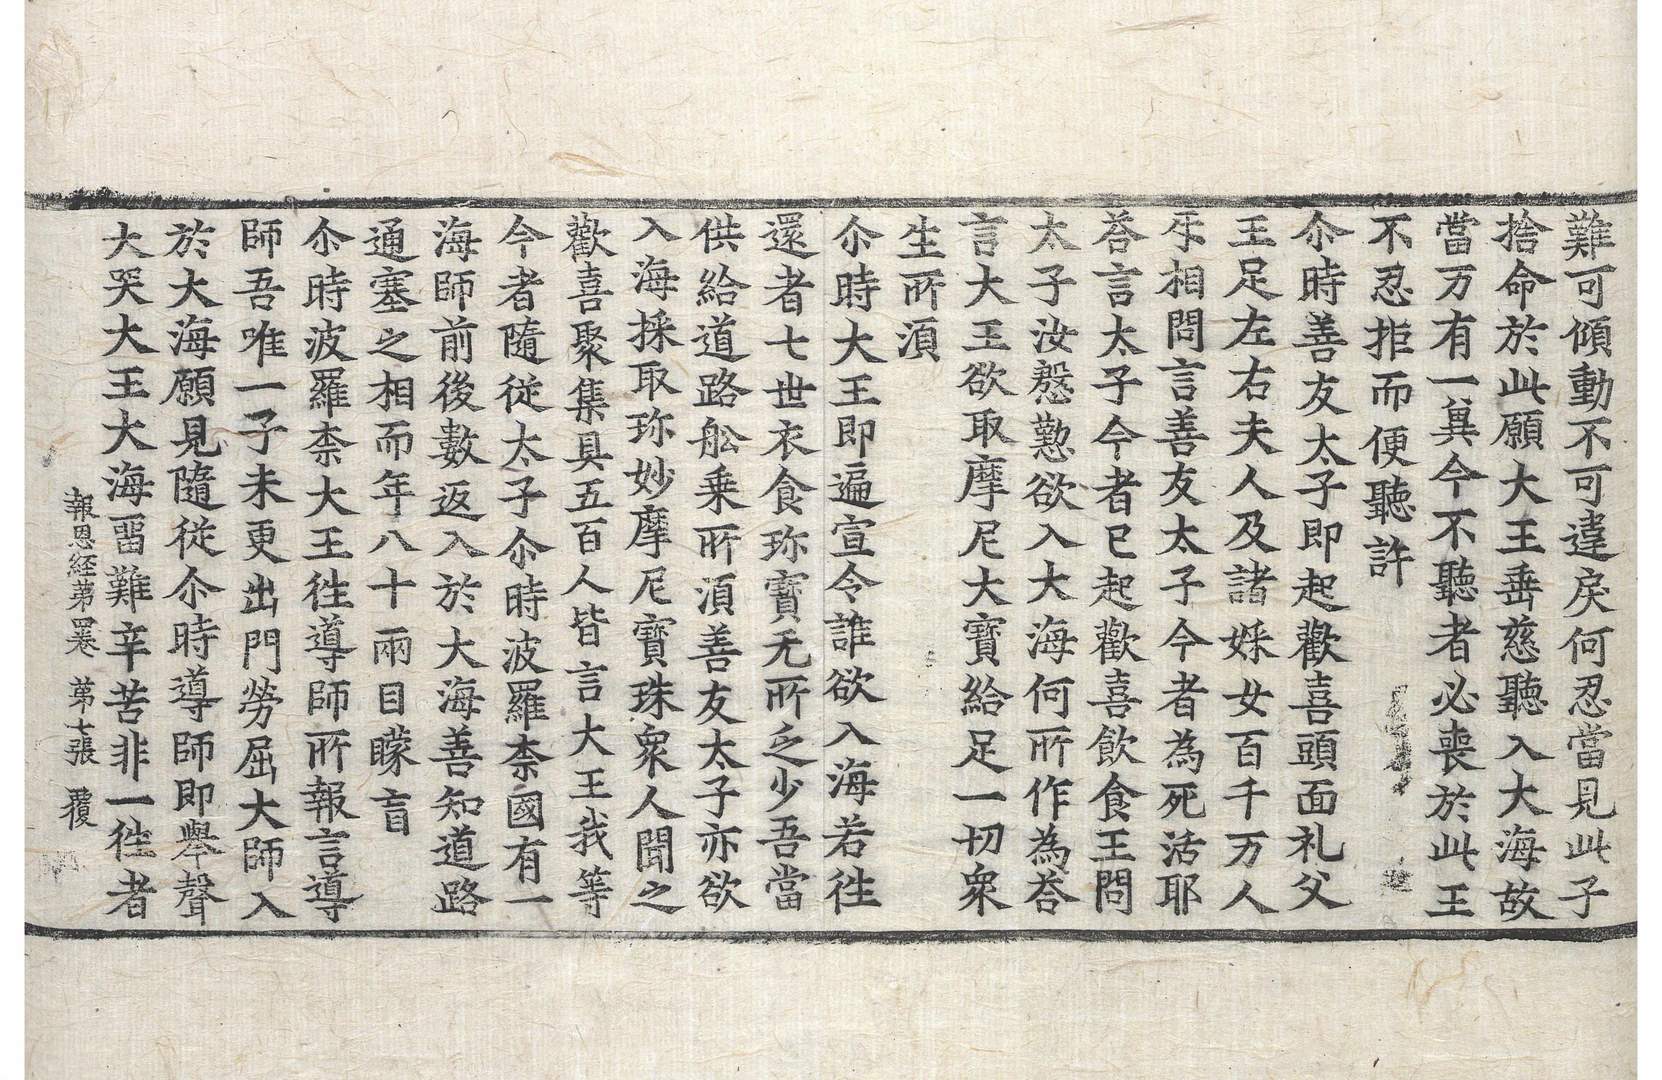 難可傾動不可違戾何忍當見此子
捨命於此願大王垂慈聽入大海故
當万有一兾今不聽者必喪於此王
不忍拒而便聽許
尒時善友太子即起歡喜頭面礼父
王足左右夫人及諸婇女百千万人
㸦相問言善友太子今者為死活耶
荅言太子今者已起歡喜飲食王問
太子汝慇懃欲入大海何所作為荅
言大王欲取摩尼大寶給足一切衆
生所湏
尒時大王即遍宣令誰欲入海若徃
還者七世衣食珎寶无所乏少吾當
供給道路舩乗所湏善友太子亦欲
入海採取珎妙摩尼寶珠衆人聞之
歡喜聚集具五百人皆言大王我等
今者隨從太子尒時波羅柰國有一
海師前後數返入於大海善知道路
通塞之相而年八十兩目矇盲
尒時波羅柰大王徃導師所報言導
師吾唯一子未更出門勞屈大師入
於大海願見隨從尒時導師即舉聲
大哭大王大海畱難辛苦非一徃者
報恩経苐四卷 苐七張 覆